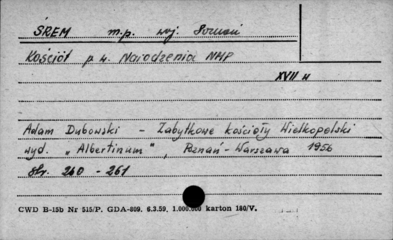 ŚREM m.p. woj. Poznań
Kościół p.w. Narodzenia NMP
XVII w
Adam Dubowski - Zabytkowe kościoły Wielkopolski
wyd. „Albertinum", Poznań-Warszawa 1956
str. 260 - 261
CWD B-15b Nr 515/P. GDA-809. 6.3.59. 1.000.000 karton 180/V.